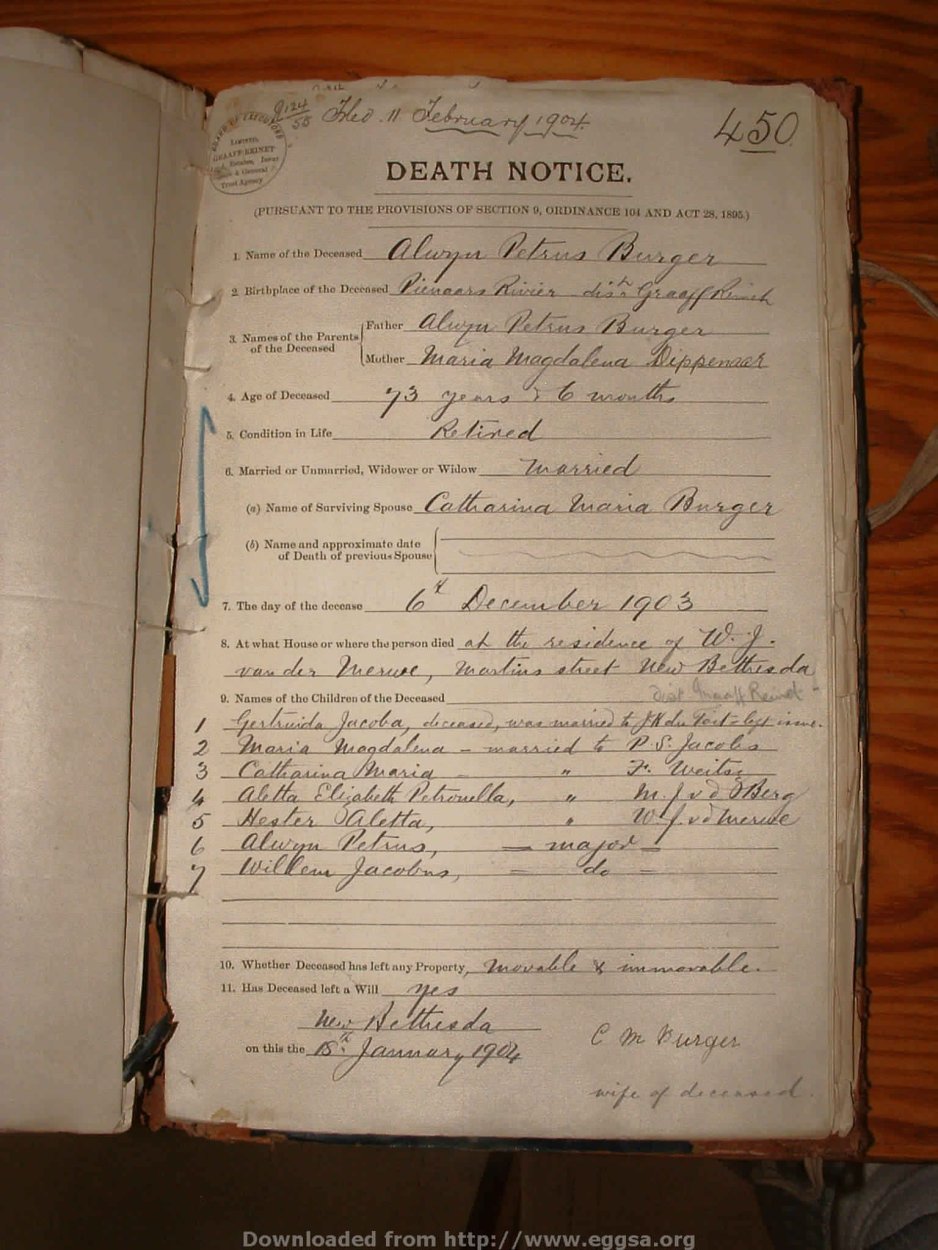 9124/55 Filed 11 February 1904. 450
BOARD OF EXECUTORS
LIMITED.
GRAAFF-REINET
Estates, Insur
& General
Trust Agency
DEATH NOTICE.
(PURSUANT TO THE PROVISIONS OF SECTION 9, ORDINANCE 104 AND ACT 28, 1895.)
1. Name of the Deceased Alwyn Petrus Burger
2. Birthplace of the Deceased Pienaars Rivier distr Graaff Reinet
3. Names of the Parents of the Deceased
Father Alwyn Petrus Burger
Mother Maria Magdalena Dippenaar
4. Age of Deceased 73 years & 6 months
5. Condition in Life Retired
6. Married or Unmarried, Widower or Widow Married
(a) Name of Surviving Spouse Catharina Maria Burger
(b) Name and approximate date
of Death of previous Spouse
7. The day of the decease 6th December 1903
8. At what House or where the person died at the residence of W. J.
van der Merwe, Martins street New Bethesda
Dist Graaff Reinet
9. Names of the Children of the Deceased
1 Gertruida Jacoba, deceased, was married to J H du Toit - left issue.
2 Maria Magdalena - married to P. S. Jacobs
3 Catharina Maria - " F. Weitsz
4 Aletta Elizabeth Petronella, " M. J v d Berg
5 Hester Aletta, " W J v d Merwe
6 Alwyn Petrus, - major -
7 Willem Jacobus, - do -
10. Whether Deceased has left any Property, Movable & immovable.
11. Has Deceased left a Will yes
New Bethesda
on this the 15th January 1904
C M Burger
wife of deceased.
Downloaded from http://www.eggsa.org